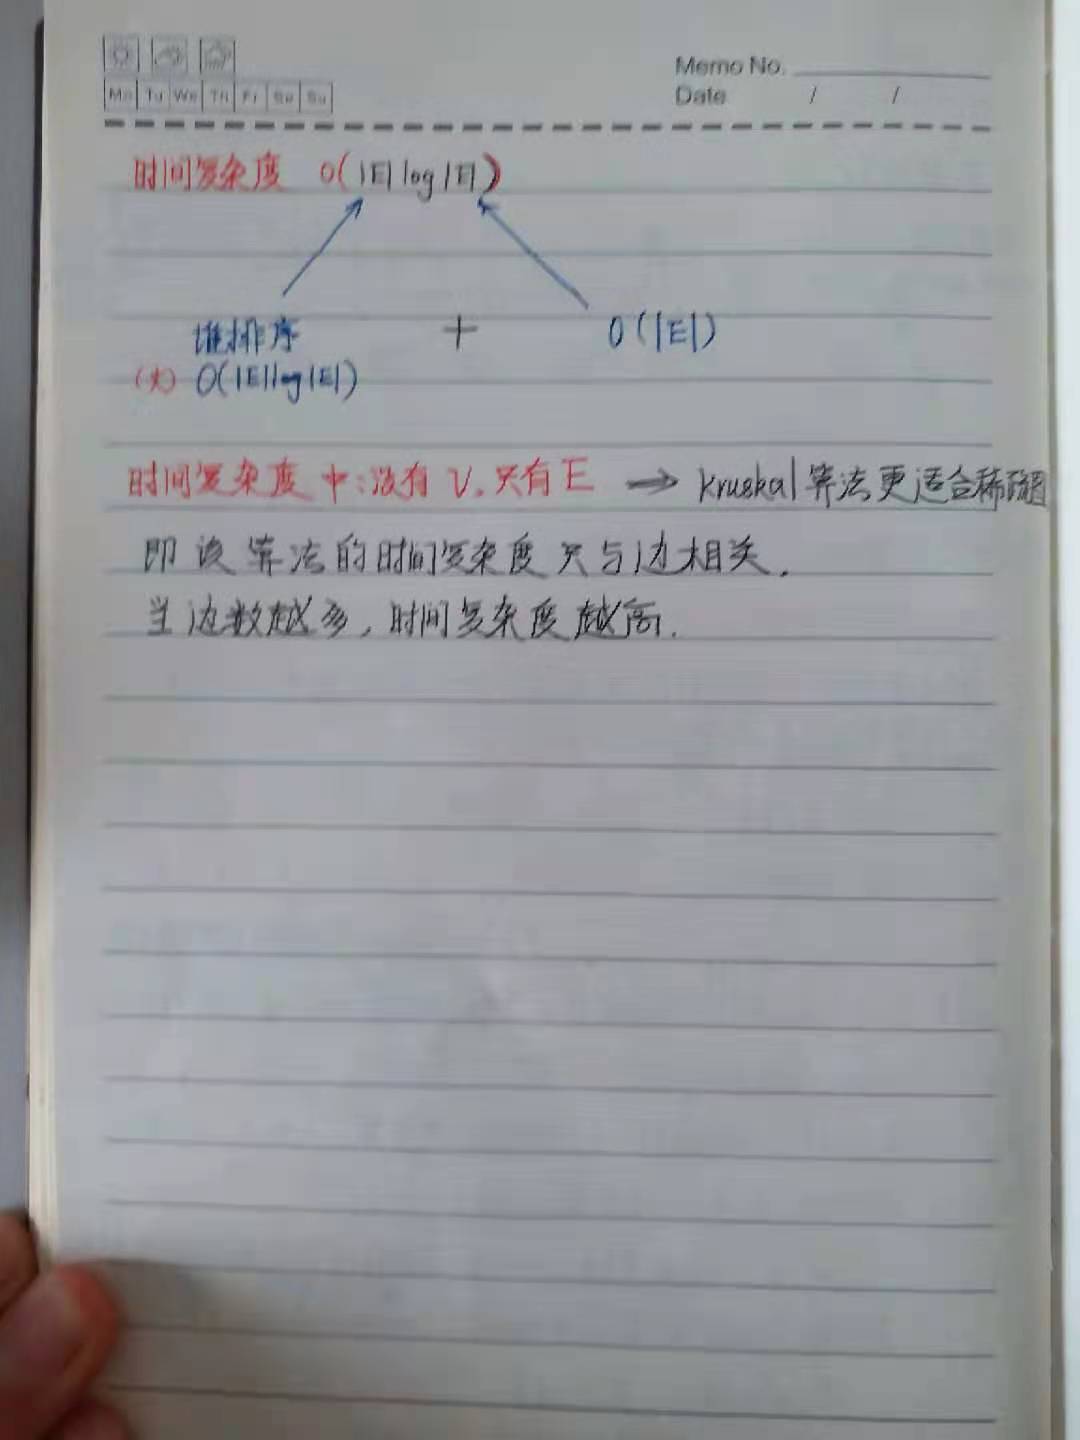 Memo No.
Mo Tu We Th Fr Sa Su
Date / /
时间复杂度 O(|E|log|E|)
堆排序 + O(|E|)
(大) O(|E|log|E|)
时间复杂度中:没有V,只有E → Kruskal算法更适合稀疏图
即该算法的时间复杂度只与边相关.
当边数越多,时间复杂度越高.